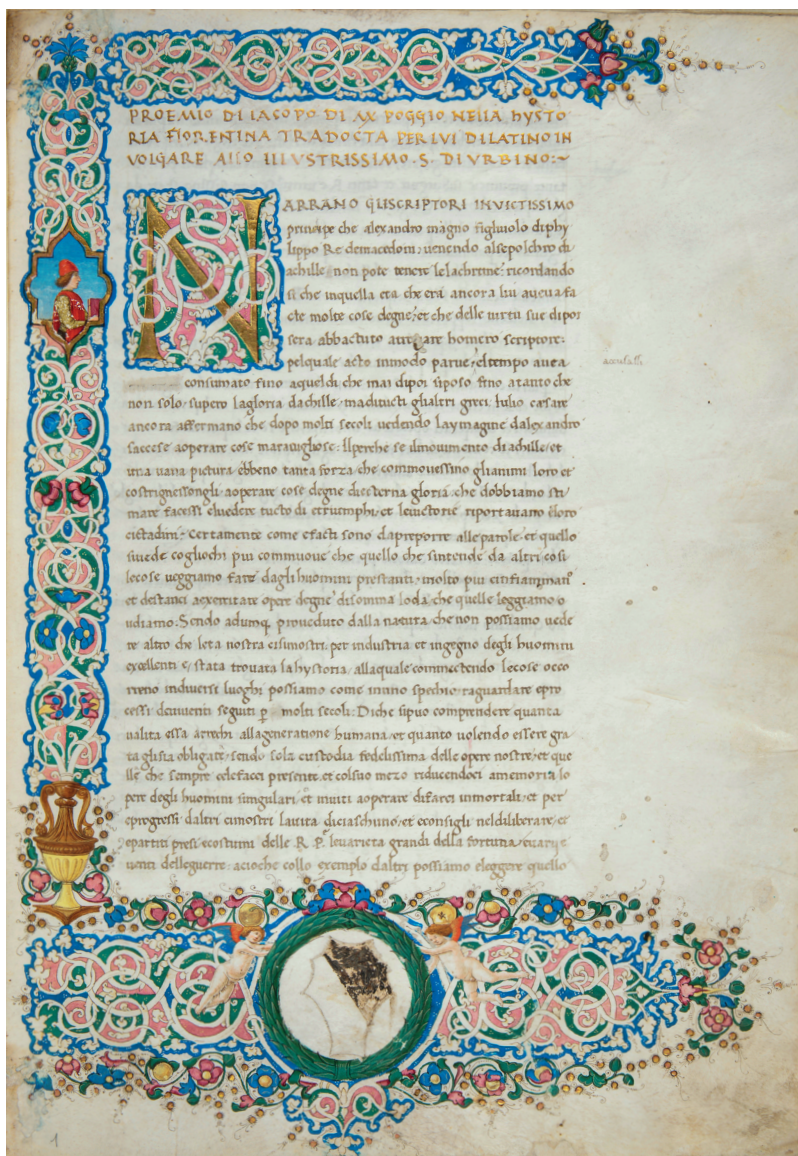 PROEMIO DI IACOPO DI MX POGGIO NELLA HYSTO
RIA FIORENTINA TRADOCTA PER LUI DI LATINO IN
VOLGARE ALLO ILLUSTRISSIMO .S. DI URBINO:~
NARRANO GLISCRIPTORI INVICTISSIMO
principe che alexandro magno figliuolo diphy
lippo Re demacedoni: venendo alsepolchro di
achille non pote tenere lelachrime: ricordando
si che inquella eta che era ancora lui aveva fa
cte molte cose degne: et che delle virtu sue dipoi
sera abbactuto homero scriptore:
pelquale acto inmodo parve, eltempo avea
consumato fino aqueldi che mai dipoi siposo fino atanto che
non solo supero lagloria dachille, maditucti glialtri greci. Iulio cesare
ancora affermano che dopo molti secoli vedendo laymagine dalexandro
saccese aoperare cose maravigliose: Ilperche se ilmovimento di achille et
una vana pictura ebbeno tanta forza che commovessino glianimi loro et
costrignessongli aoperare cose degne dieterna gloria, che dobbiamo sti
mare facessi elvedere tucto di etriumphi, et levictorie riportavano eloro
cictadini. Certamente come efacti sono dapreporre alle parole, et quello
sivede cogliochi piu commuove che quello che sintende da altri cosi
lecose veggiamo fare dagli huomini prestanti, molto piu cinfiammano
et destanci aexercitare opere degne disomma loda, che quelle leggiamo o
udiamo. Sendo adumq proveduto dalla natura, che non possiamo vede
re altro che leta nostra cisimostri, per industria et ingegno degli huomini
excellenti e, stata trovata lahystoria, allaquale commectendo lecose occo
rreno indiversi luoghi possiamo come inuno spechio raguardare epro
cessi deuventi seguiti p molti secoli: Diche sipuo comprendere quanta
utilita essa arrechi allageneratione humana, et quanto volendo essere gra
ta glisia obligata, sendo sola custodia fedelissima delle opere nostre, et que
lle che sempre celefacci presente, et colsuo mezo riducendoci amemoria lo
pere degli huomini singulari, et inviti aoperare difarci inmortali, et per
eprogressi daltri cimostri lavita diciaschuno, et econsigli neldiliberare, et
epartiti presi ecostumi delle R. P. levarieta grandi della fortuna, evarij e
venti delleguerre: acioche collo exemplo daltri possiamo eleggere quello
1